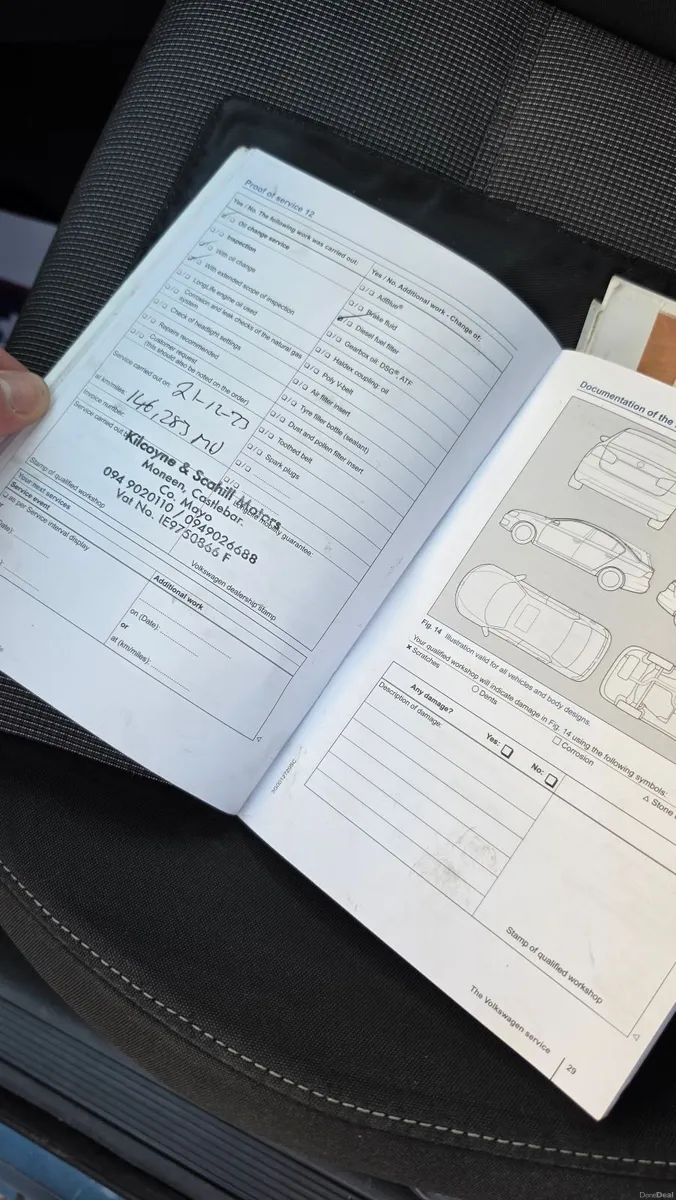 Proof of service 12
Yes / No. The following work was carried out:
Oil change service
Inspection
With oil change
With extended scope of inspection
LongLife engine oil used
Corrosion and leak checks of the natural gas
system
Check of headlight settings
Repairs recommended
Customer request
(this should also be noted on the order)
Yes / No. Additional work - Change of:
AdBlue®
Brake fluid
Diesel fuel filter
Gearbox oil: DSG®, ATF
Haldex coupling: oil
Poly V-belt
Air filter insert
Tyre filler bottle (sealant)
Dust and pollen filter insert
Toothed belt
Spark plugs
Service carried out on: 21-12-23
at km/miles: 146,283
Invoice number:
Service carried out
mobility guarantee:
Kilcoyne & Scahill Motors
Moneen, Castlebar.
Co. Mayo
094 9020110 / 0949026688
Vat No. IE9750866 F
Stamp of qualified workshop
Volkswagen dealership stamp
Your next services
Service event
as per Service interval display
Date):
Additional work
on (Date):
or
at (km/miles):
Documentation of the
Fig. 14 Illustration valid for all vehicles and body designs.
Your qualified workshop will indicate damage in Fig. 14 using the following symbols:
× Scratches
Dents
Corrosion
Stone
Any damage?
Yes:
No:
Description of damage:
Stamp of qualified workshop
The Volkswagen service
29
DoneDeal